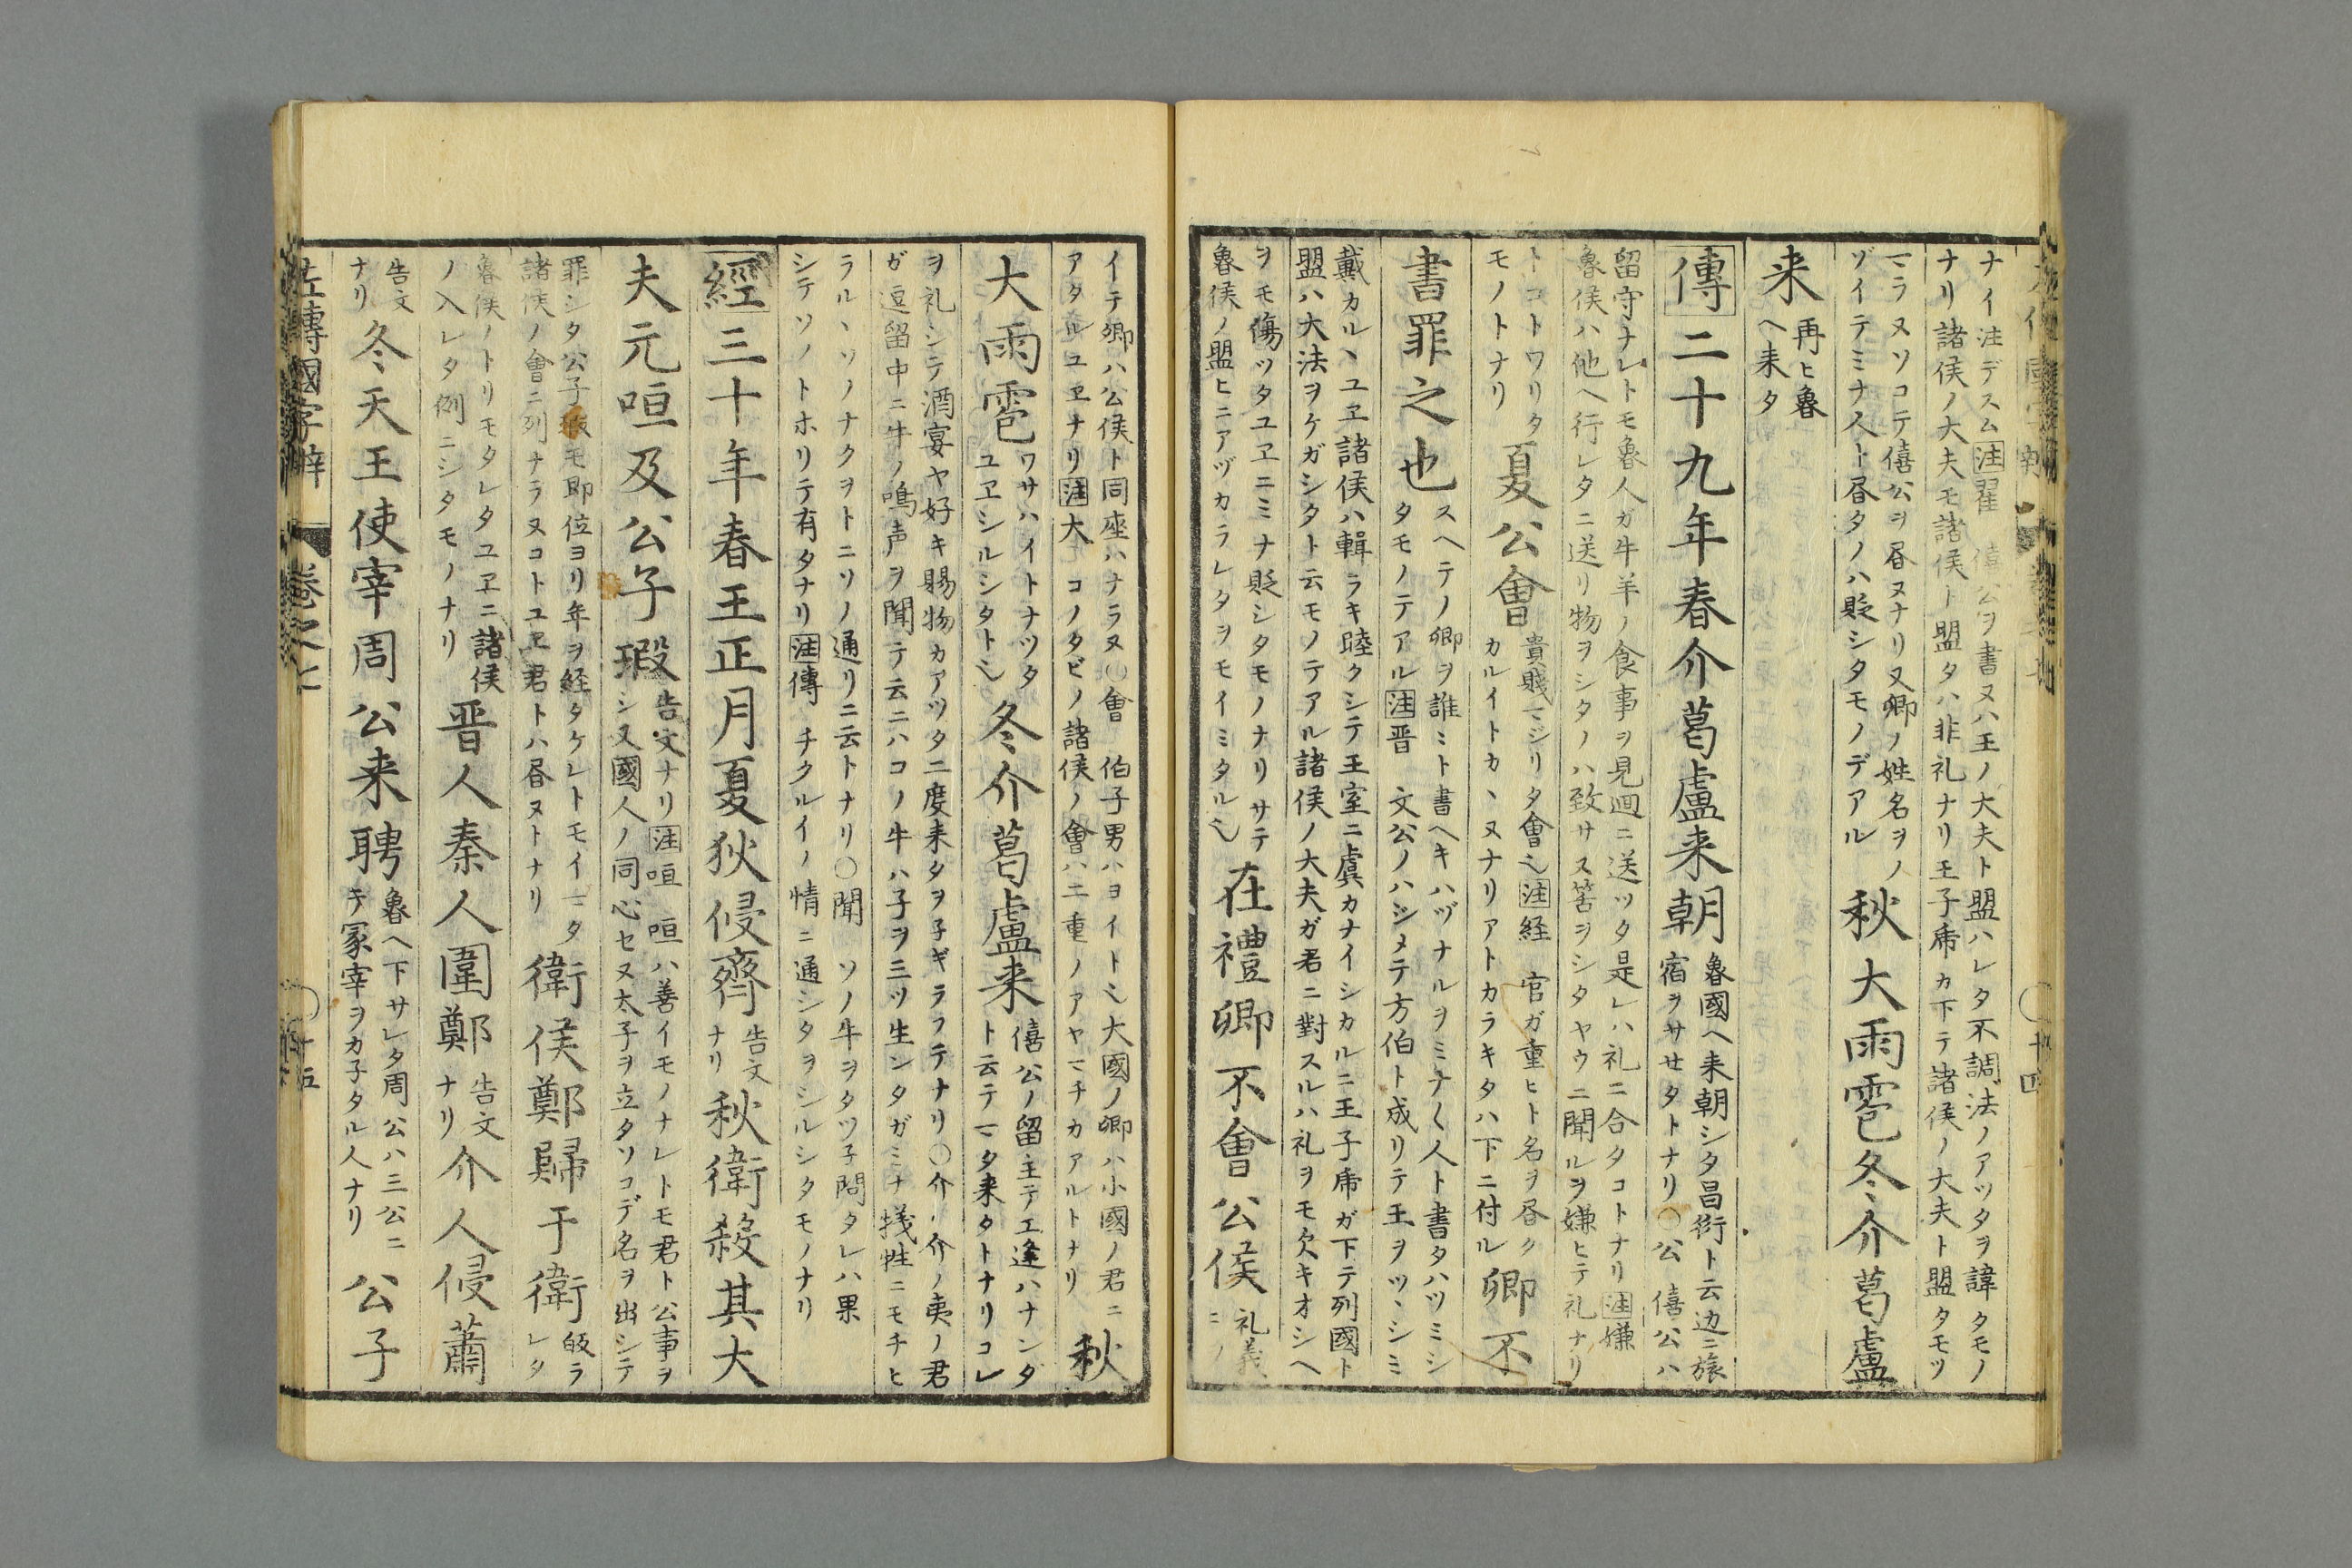 ナイ注デスム注翟　僖公ヲ書ヌハ王ノ大夫ト盟ハレタ不調法ノアツタヲ諱タモノ
ナリ諸侯ノ大夫モ諸侯ト盟タハ非礼ナリ王子虎カ下テ諸侯ノ大夫ト盟タモツ
マラヌソコテ僖公ヲ昏ヌナリ又卿ノ姓名ヲノ
ゾイテミナ人ト昏タノハ貶シタモノデアル
秋大雨雹冬介葛盧
来
再ヒ魯
ヘ来タ
傳二十九年春介葛盧来朝
魯國ヘ来朝シタ昌衍ト云辺ニ旅
宿ヲサセタトナリ○公　僖公ハ
留守ナレトモ魯人ガ牛羊ノ食事ヲ見廻ニ送ツタ是レハ礼ニ合タコトナリ注嫌
魯侯ハ他ヘ行レタニ送リ物ヲシタノハ致サヌ筈ヲシタヤウニ聞ルヲ嫌ヒテ礼ナリ
トコトワリタ
モノトナリ
夏公會
貴賤マジリタ會也注経　官ガ重ヒト名ヲ昏ク
カルイトカヽヌナリアトカラキタハ下ニ付ル
卿不
書罪之也
スヘテノ卿ヲ誰ミト書ヘキハヅナルヲミナ〱人ト書タハツミシ
タモノテアル注晋　文公ノハジメテ方伯ト成リテ王ヲツヽシミ
戴カルヽユヱ諸侯ハ輯ラキ睦クシテ王室ニ虞カナイシカルニ王子虎ガ下テ列國ト
盟ハ大法ヲケガシタト云モノテアル諸侯ノ大夫ガ君ニ對スルハ礼ヲモ欠キオシヘ
ヲモ傷ツタユヱニミナ貶シタモノナリサテ
魯侯ノ盟ヒニアヅカラレタヲモイミタル也
在禮卿不會公侯
礼義
ニノ
イテ卿ハ公侯ト同座ハナラヌ○會　伯子男ハヨイト也大國ノ卿ハ小國ノ君ニ
アタルユヱナリ注大　コノタビノ諸侯ノ會ハ二重ノアヤマチカアルトナリ
秋
大雨雹
ワサハイトナツタ
ユヱシルシタト也
冬介葛盧来
僖公ノ留主テエ逢ハナンダ
ト云テマタ来タトナリコレ
ヲ礼シテ酒宴ヤ好キ賜物カアツタ二度来タヲ子ギラフテナリ○介　介ノ夷ノ君
ガ逗留中ニ牛ノ鳴声ヲ聞テ云ニハコノ牛ハ子ヲ三ツ生ンタガミナ犠牲ニモチヒ
ラルヽソノナクヲトニソノ通リニ云トナリ○聞　ソノ牛ヲタツ子問タレハ果
シテソノトホリテ有タナリ注傳　チクルイノ情ニ通シタヲシルシタモノナリ
經三十年春王正月夏狄侵齊
告文
ナリ
秋衛殺其大
夫元咺及公子瑕
告文ナリ注咺　咺ハ善イモノナレトモ君ト公事ヲ
シ又國人ノ同心セヌ太子ヲ立タソコデ名ヲ出シテ
罪シタ公子瑕モ即位ヨリ年ヲ経タケレトモイマタ
諸侯ノ會ニ列ナラヌコトユヱ君トハ昏ヌトナリ
衛侯鄭歸于衛
皈ラ
レタ
魯侯ノトリモタレタユヱニ諸侯
ノ入レタ例ニシタモノナリ
晋人秦人圍鄭
告文
ナリ
介人侵蕭
告文
ナリ
冬天王使宰周公来聘
魯ヘ下サレタ周公ハ三公ニ
キ冢宰ヲカ子タル人ナリ
公子
左傳國字辯　卷之七　○十五